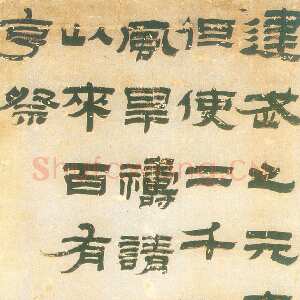 建武之元
但使二千
風旱禱請
以來百有
亨祭